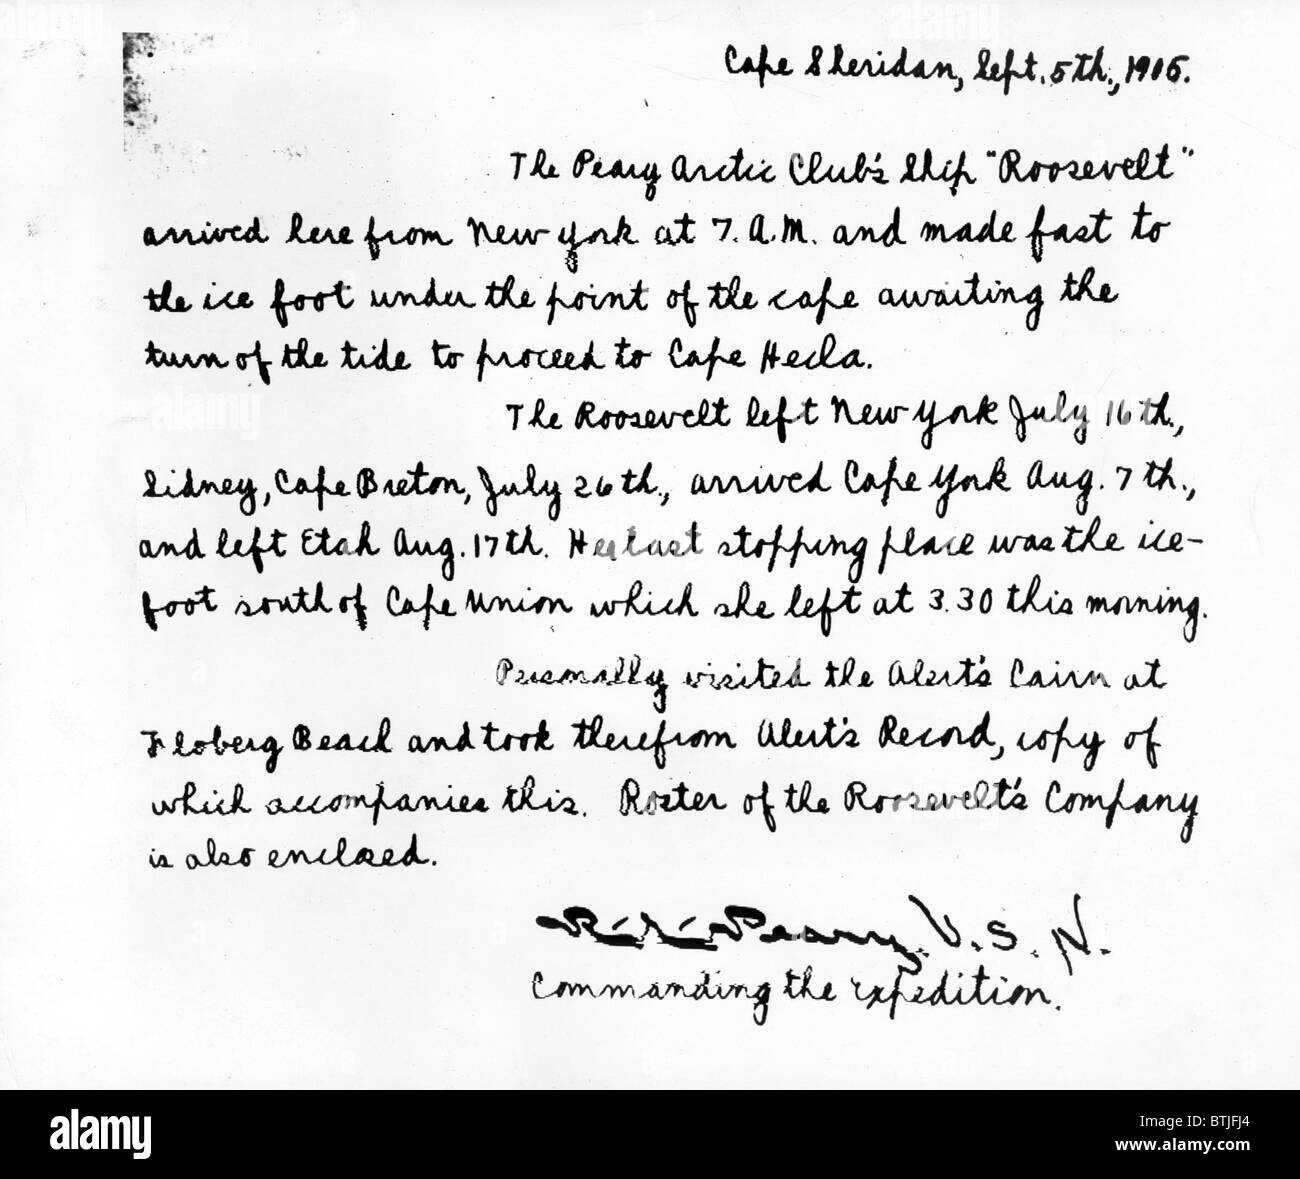 Cape Sheridan, Sept. 5th., 1905.
The Peary Arctic Club's Ship "Roosevelt"
arrived here from New York at 7. A.M. and made fast to
the ice foot under the point of the cape awaiting the
turn of the tide to proceed to Cape Hecla.
The Roosevelt left New York July 16th.,
Sidney, Cape Breton, July 26th., arrived Cape York Aug. 7th.,
and left Etah Aug. 17th. Her last stopping place was the ice-
foot south of Cape Union which she left at 3.30 this morning.
Personally visited the Alert's Cairn at
Floberg Beach and took therefrom Alert's Record, copy of
which accompanies this. Roster of the Roosevelt's Company
is also enclosed.
R. E. Peary. U. S. N.
Commanding the Expedition.
alamy
Image ID: BTJFJ4
www.alamy.com